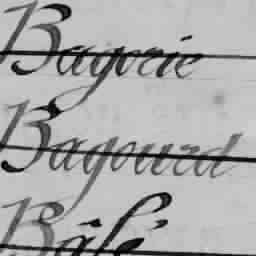 Bagorie
Bagourd
Bâlé